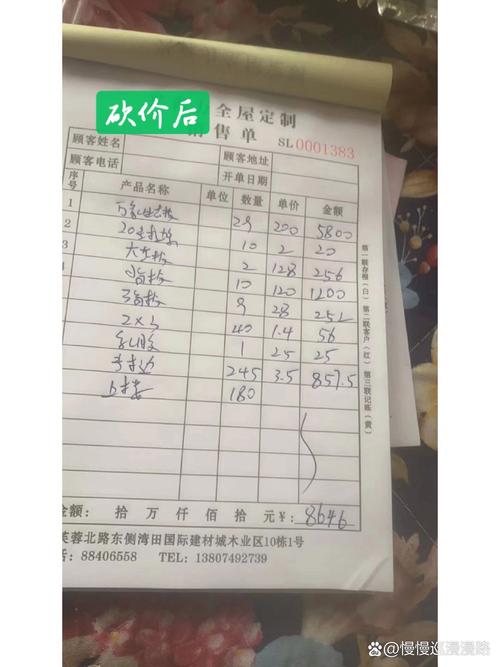 砍价后
全屋定制
销售单 SL0001383
顾客姓名 顾客地址
顾客电话 开单日期
序号 产品名称 单位 数量 单价 金额
1 29 200 5800
2 10 2 20
3 2 128 256
4 10 120 1200
9 28 252
2×3 40 1.4 56
乳胶 1 25 25
245 3.5 857.5
180
金额: 拾 万 仟 佰 拾 元 ¥: 8646
芙蓉北路东侧湾田国际建材城木业区10栋1号
话: 88406558 TEL: 13807492739
第一联存根(白) 第二联客户(红) 第三联记账(黄)
慢慢巡漫漫路